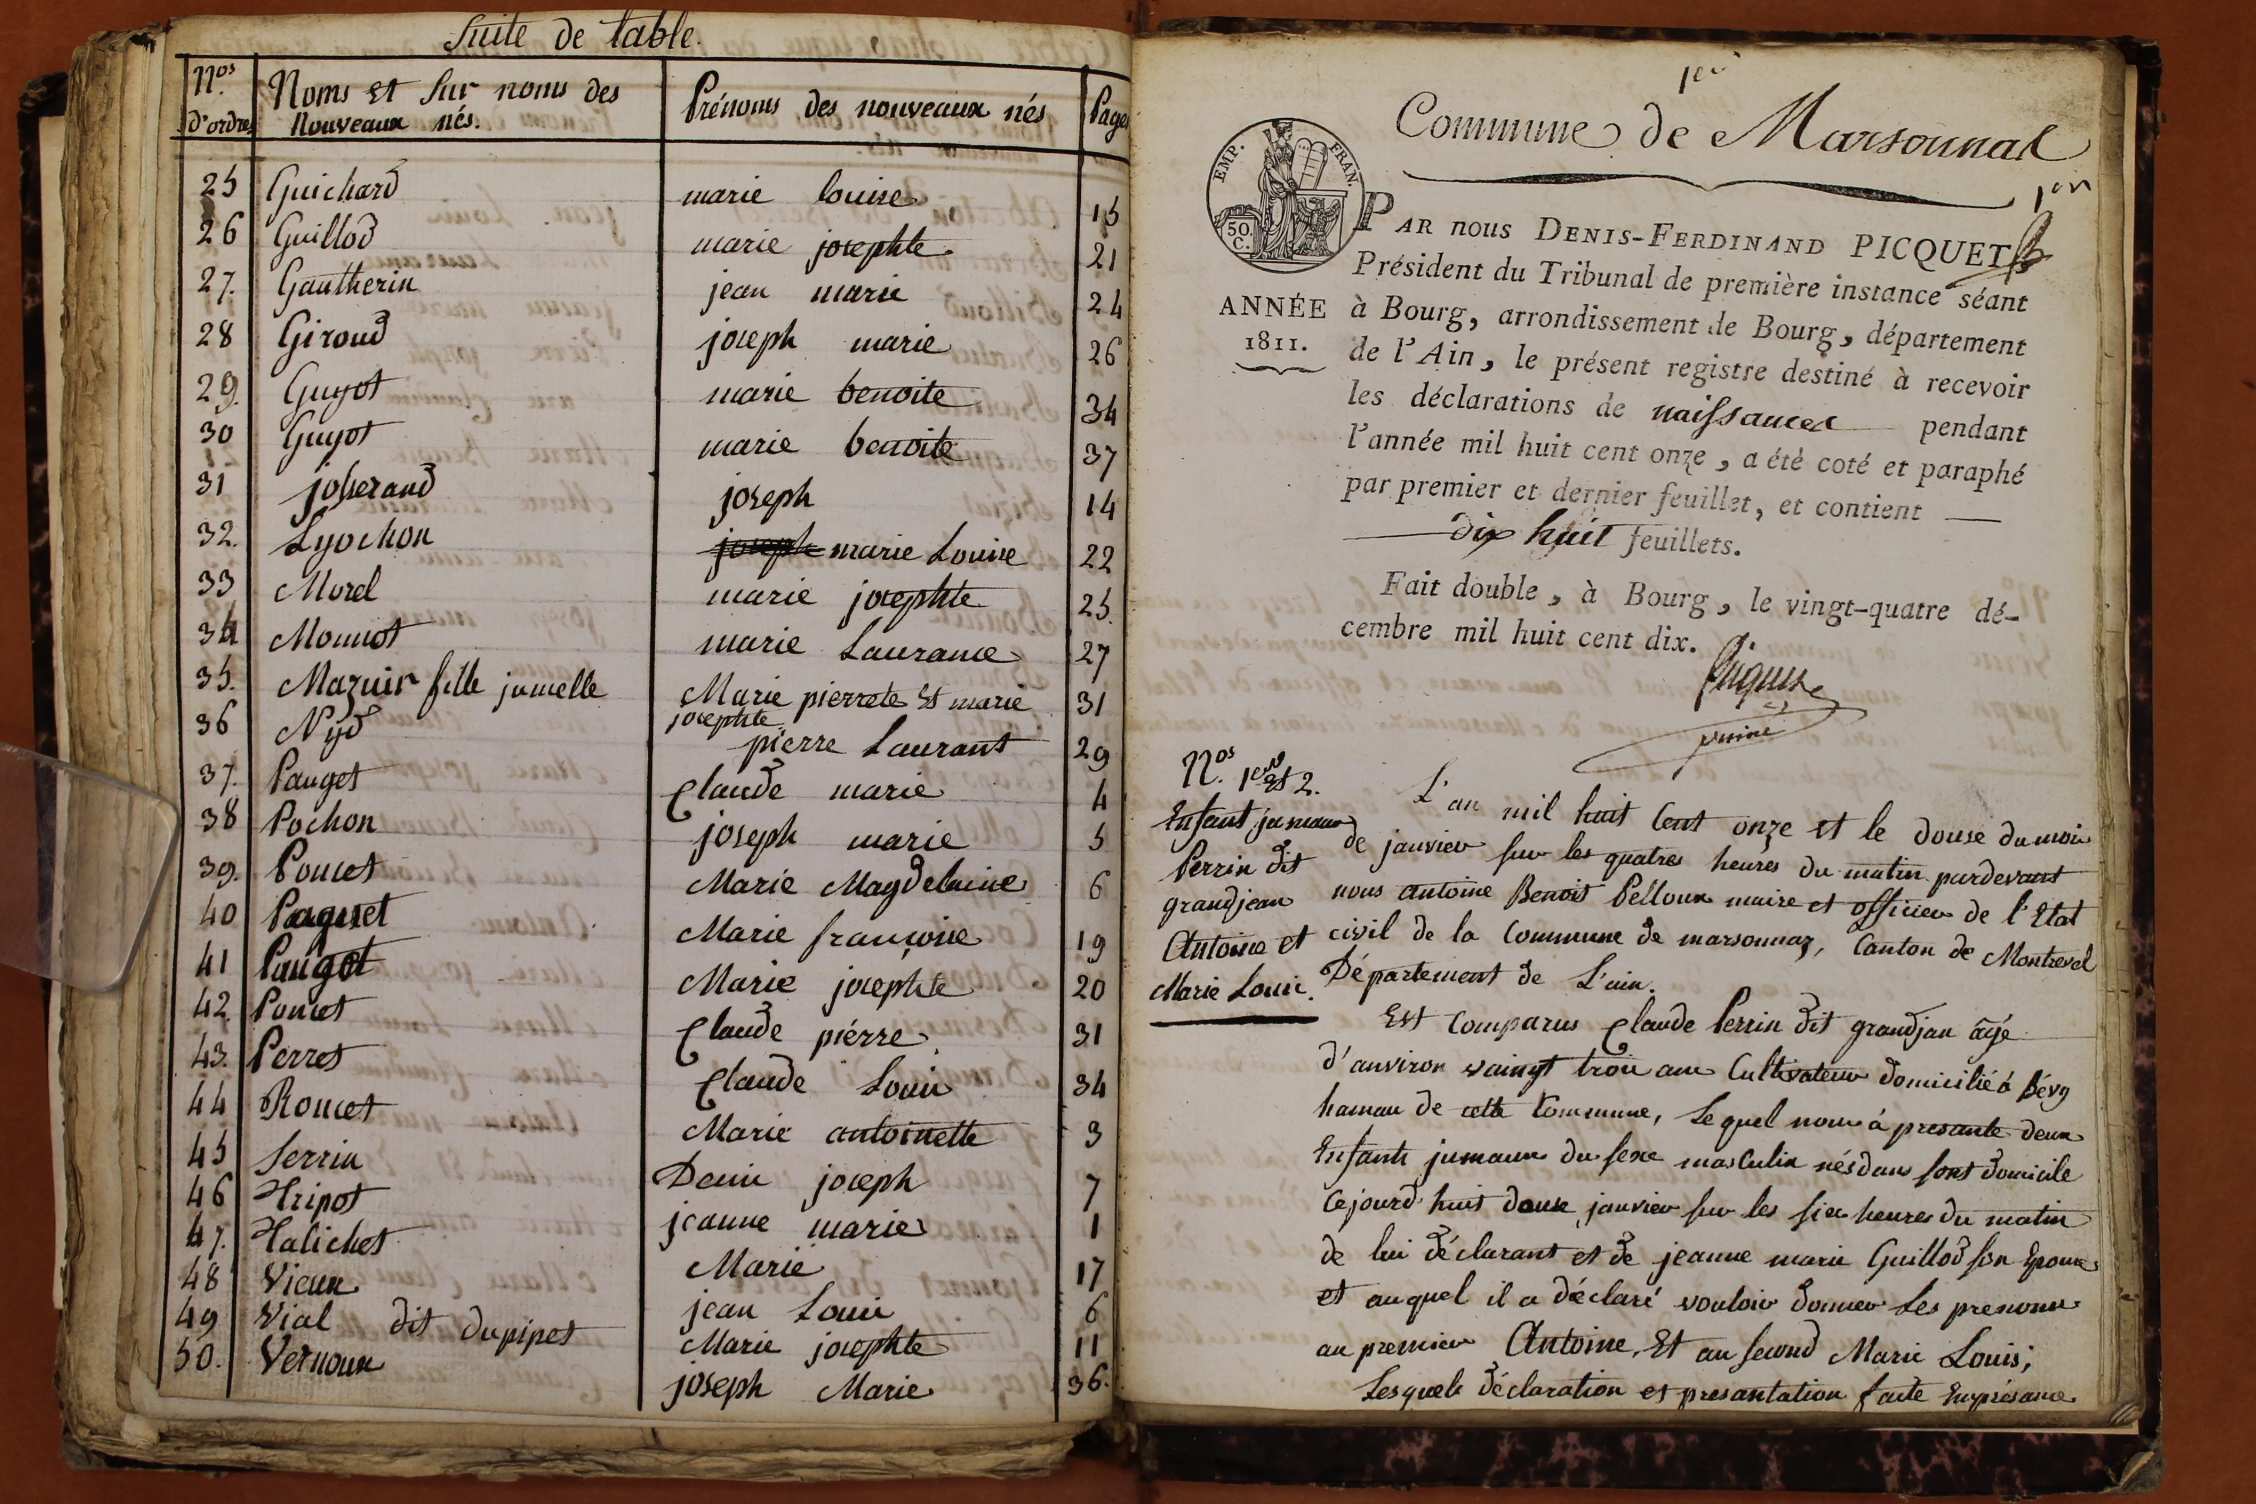 Suite de table.
Nos d'ordres Noms et Sur noms des Nouveaux nés. Prénoms des nouveaux nés Pages
25 Guichard marie louise 15
26 Guillod marie josephte 21
27. Gautherin jean marie 24
28 Giroud joseph marie 26
29. Guyot marie benoite 34
30 Guyot marie benoite 37
31 josserand joseph 14
32. Lyochon joseph marie Louise 22
33 Morel marie josephte 25.
34 Monnot marie Laurance 27
35. Mazuir fille jumelle Marie pierrete Et marie josephte 31
36 Nyd pierre Laurant 29
37. Pauget Claude marie 4
38 Pochon joseph marie 5
39. Poncet Marie Magdelaine 6
40 Paquet Marie françoise 19
41 Pauget Marie josephte 20
42. Poncet Claude piérre 31
43. Perret Claude Louis 34
44 Roncet Marie antoinette 3
45 Serrin Denis joseph 7
46 Tripot jeanne marie 1
47. Talichet Marie 17
48 Vieux jean Louis 6
49 Vial dit dupipet Marie josephte 11
50. Vernoux joseph Marie 36.
1er
Commune de Marsonnas
1er
EMP. FRAN.
50. C.
ANNÉE
1811.
PAR nous DENIS-FERDINAND PICQUET
Président du Tribunal de première instance séant
à Bourg, arrondissement de Bourg, département
de l'Ain, le présent registre destiné à recevoir
les déclarations de naissances pendant
l'année mil huit cent onze, a été coté et paraphé
par premier et dernier feuillet, et contient
dix huit feuillets.
Fait double, à Bourg, le vingt-quatre dé-
cembre mil huit cent dix.
Nos. 1er Et 2.
Enfant jumaux
Perrin dit
grandjean
Antoine et
Marie Louis.
L'an mil huit Cent onze et le douse du mois
de janvier sur les quatres heures du matin pardevant
nous antoine Benoit Pelloux maire et officier de l'Etat
civil de la Commune de marsonnaz, Canton de Montrevel
Département de L'ain.
Est Comparus Claude Perrin dit grandjan âgé
d'anviron vaingt trois ans Cultivateur domicilié à Bévy
hamau de cette Commune, Lequel nous à presante deux
Enfants jumaux du sexe masculin nés dans sont domicile
Cejourd'huit douse janvier sur les six heures du matin
de lui déclarant et de jeanne marie Guillod son Epouse
et auquel il a déclaré vouloir donner Les prenoms
au premier Antoine, Et au second Marie Louis;
Lesquels déclaration et presantation faite En présance